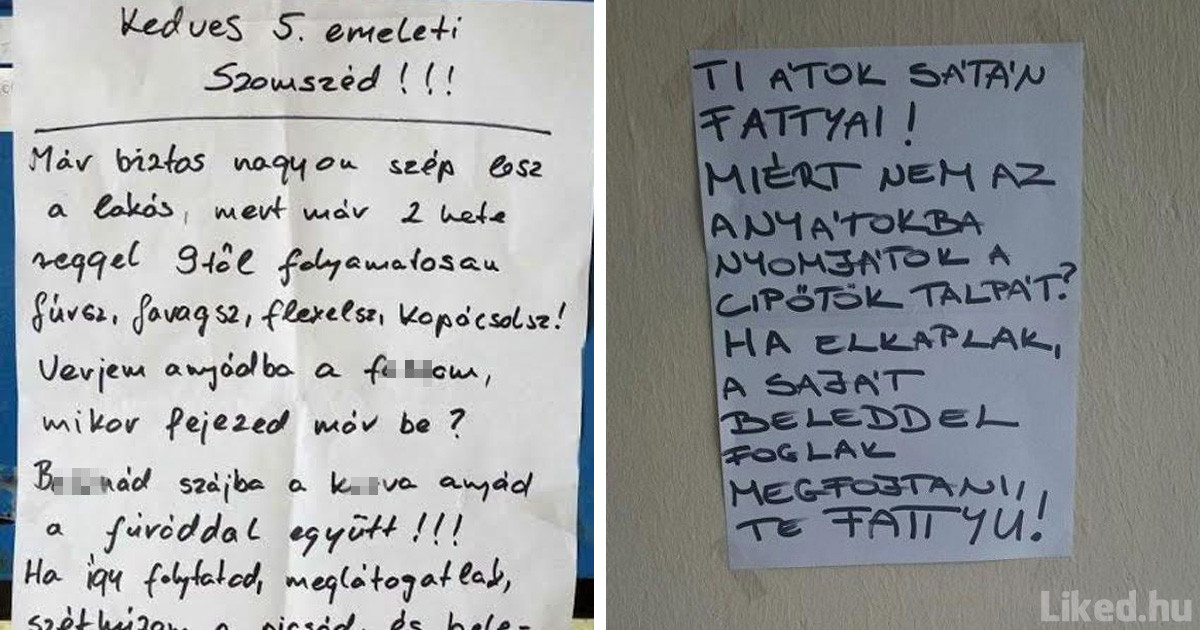 Kedves 5. emeleti
Szomszéd!!!
Már biztos nagyon szép lesz
a lakás, mert már 2 hete
reggel 9től folyamatosan
fúrsz, favagsz, flexelsz, kopácsolsz!
Verjem anyádba a f om,
mikor fejezed már be?
B nád szájba a k va anyád
a fúróddal együtt!!!
Ha így folytatod, meglátogatlak,
széthúzom a picsád, és bele-
TI ÁTOK SÁTÁN
FATTYAI!
MIÉRT NEM AZ
ANYÁTOKBA
NYOMJÁTOK A
CIPŐTÖK TALPÁT?
HA ELKAPLAK,
A SAJÁT
BELEDDEL
FOGLAK
MEGFOJTANI,
TE FATTYU!
Liked.hu